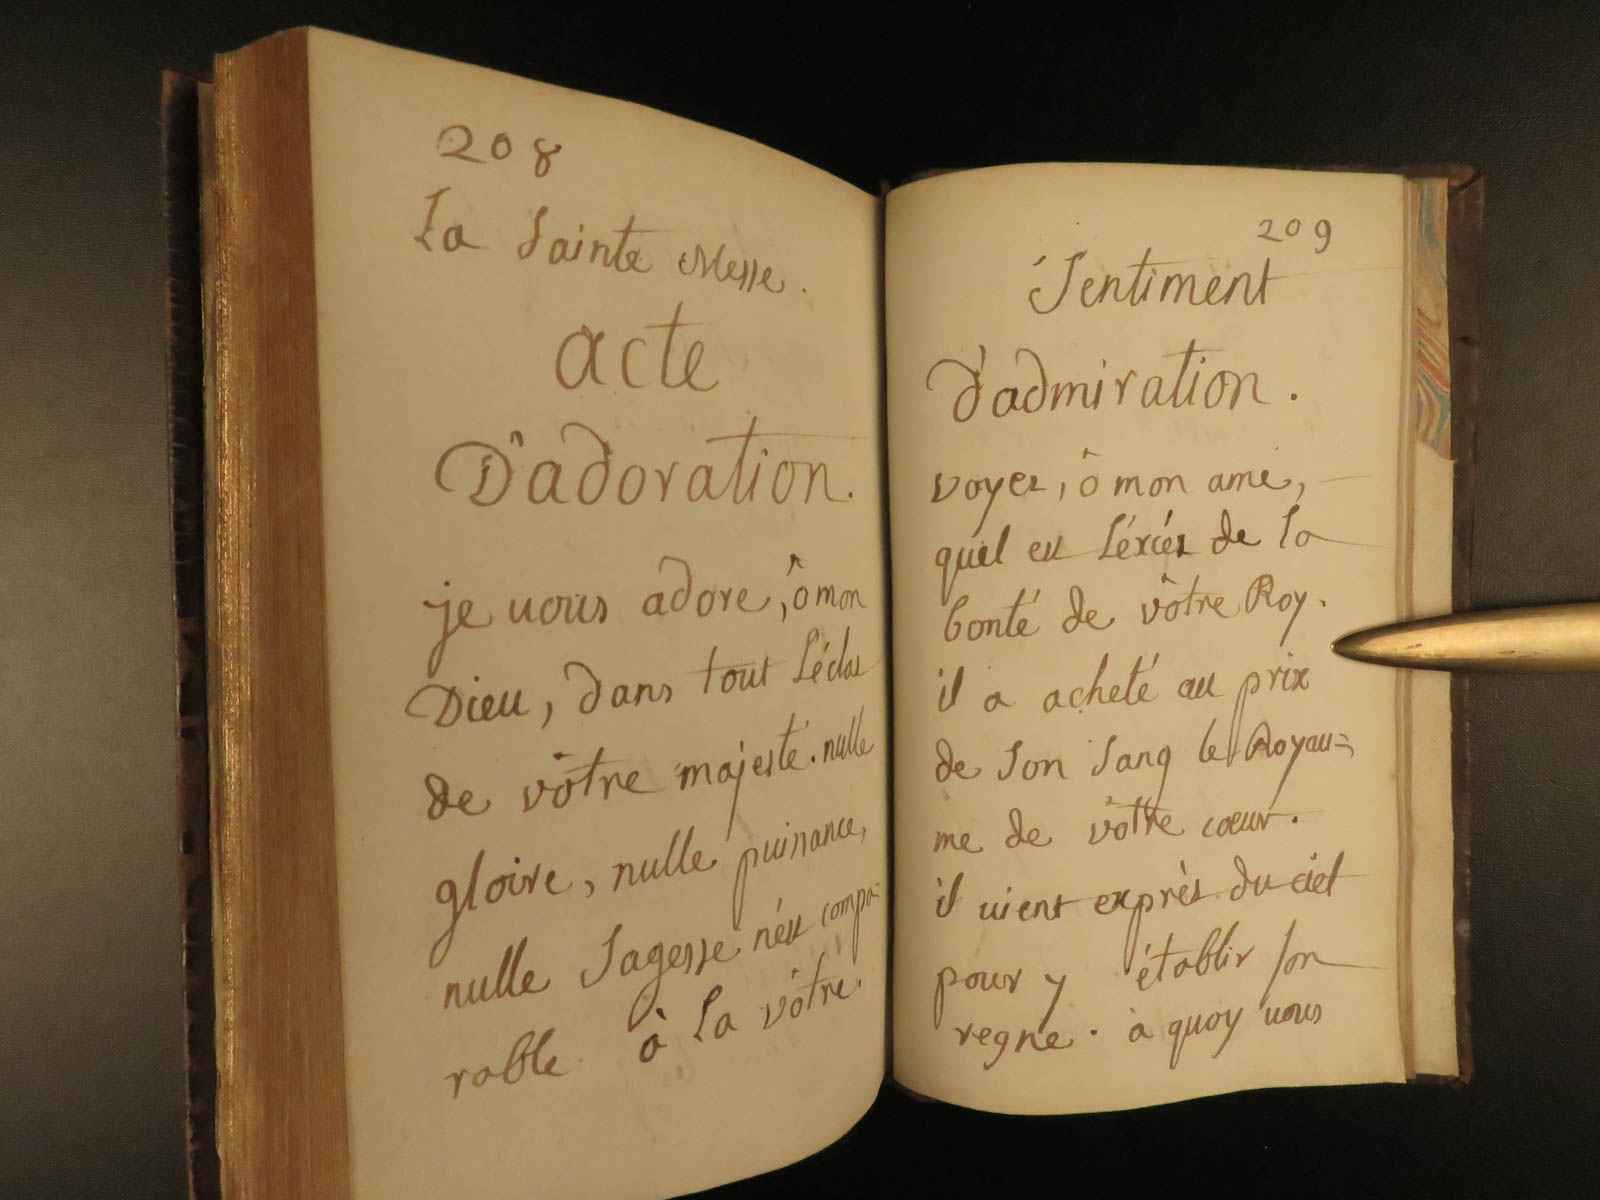 208
La Sainte Messe.
acte
D'adoration.
je uous adore, ô mon
Dieu, dans tout l'éclat
de vôtre majesté. nulle
gloire, nulle puissance,
nulle Sagesse n'ést compa=
rable à la vôtre.
209
Sentiment
d'admiration.
voyez, ô mon ame,
quel est l'éxcés de la
bonté de vôtre Roy.
il a acheté au prix
de Son Sang le Royau=
me de vôtre cœur.
il uient exprès du ciel
pour y établir son
regne. à quoy uous